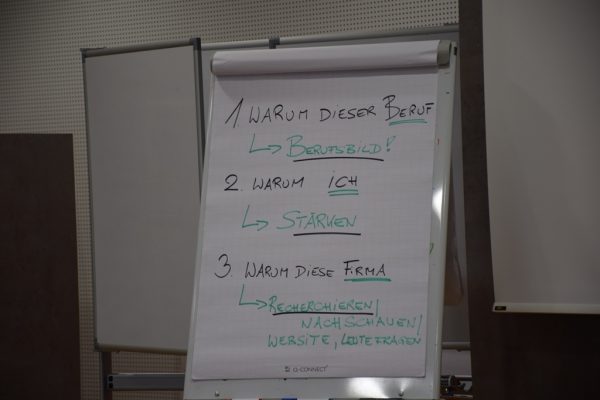 1 WARUM DIESER BERUF
↳ BERUFSBILD!
2. WARUM ICH
↳ STÄRKEN
3. WARUM DIESE FIRMA
↳ RECHERCHIEREN/
NACHSCHAUEN/
WEBSITE, LEUTE FRAGEN
Q-CONNECT